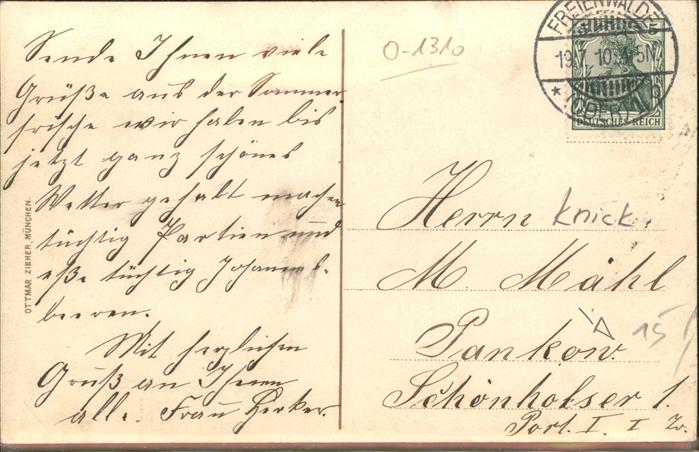 Sende Ihnen viele
Grüße aus der Sommer
frische wir haben bis
jetzt ganz schönes
Wetter gehabt machen
tüchtig Partien und
eße tüchtig Johannes-
beeren.
Mit herzlichen
Gruß an Ihnen
alle Frau
OTTMAR ZIEHER, MÜNCHEN.
0-1310
FREIENWALDE
DEUTSCHES REICH
Herrn
knick
M. Mähl
Pankow
15
Schönholser 1.
Port. I. I Tr.